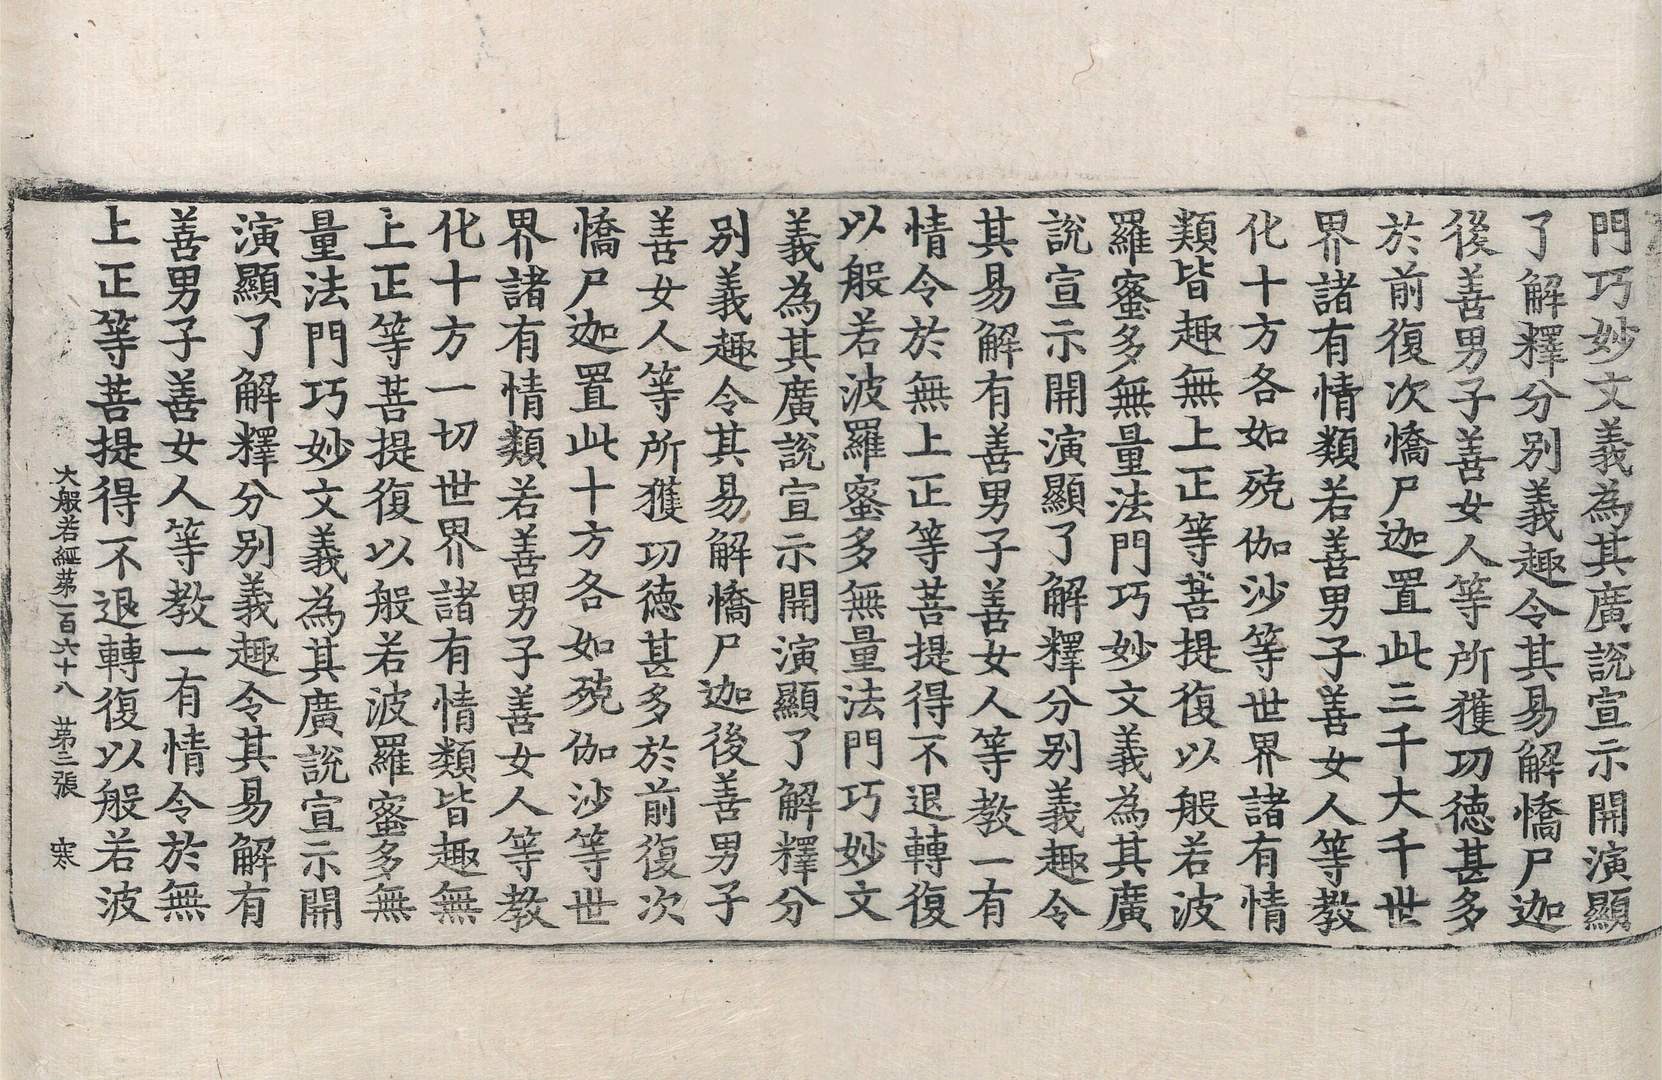 門巧妙文義為其廣說宣示開演顯
了解釋分別義趣令其易解憍尸迦
後善男子善女人等所獲功德甚多
於前復次憍尸迦置此三千大千世
界諸有情類若善男子善女人等教
化十方各如殑伽沙等世界諸有情
類皆趣無上正等菩提復以般若波
羅蜜多無量法門巧妙文義為其廣
說宣示開演顯了解釋分別義趣令
其易解有善男子善女人等教一有
情令於無上正等菩提得不退轉復
以般若波羅蜜多無量法門巧妙文
義為其廣說宣示開演顯了解釋分
別義趣令其易解憍尸迦後善男子
善女人等所獲功德甚多於前復次
憍尸迦置此十方各如殑伽沙等世
界諸有情類若善男子善女人等教
化十方一切世界諸有情類皆趣無
上正等菩提復以般若波羅蜜多無
量法門巧妙文義為其廣說宣示開
演顯了解釋分別義趣令其易解有
善男子善女人等教一有情令於無
上正等菩提得不退轉復以般若波
大般若經苐一百六十八 苐三張 寒